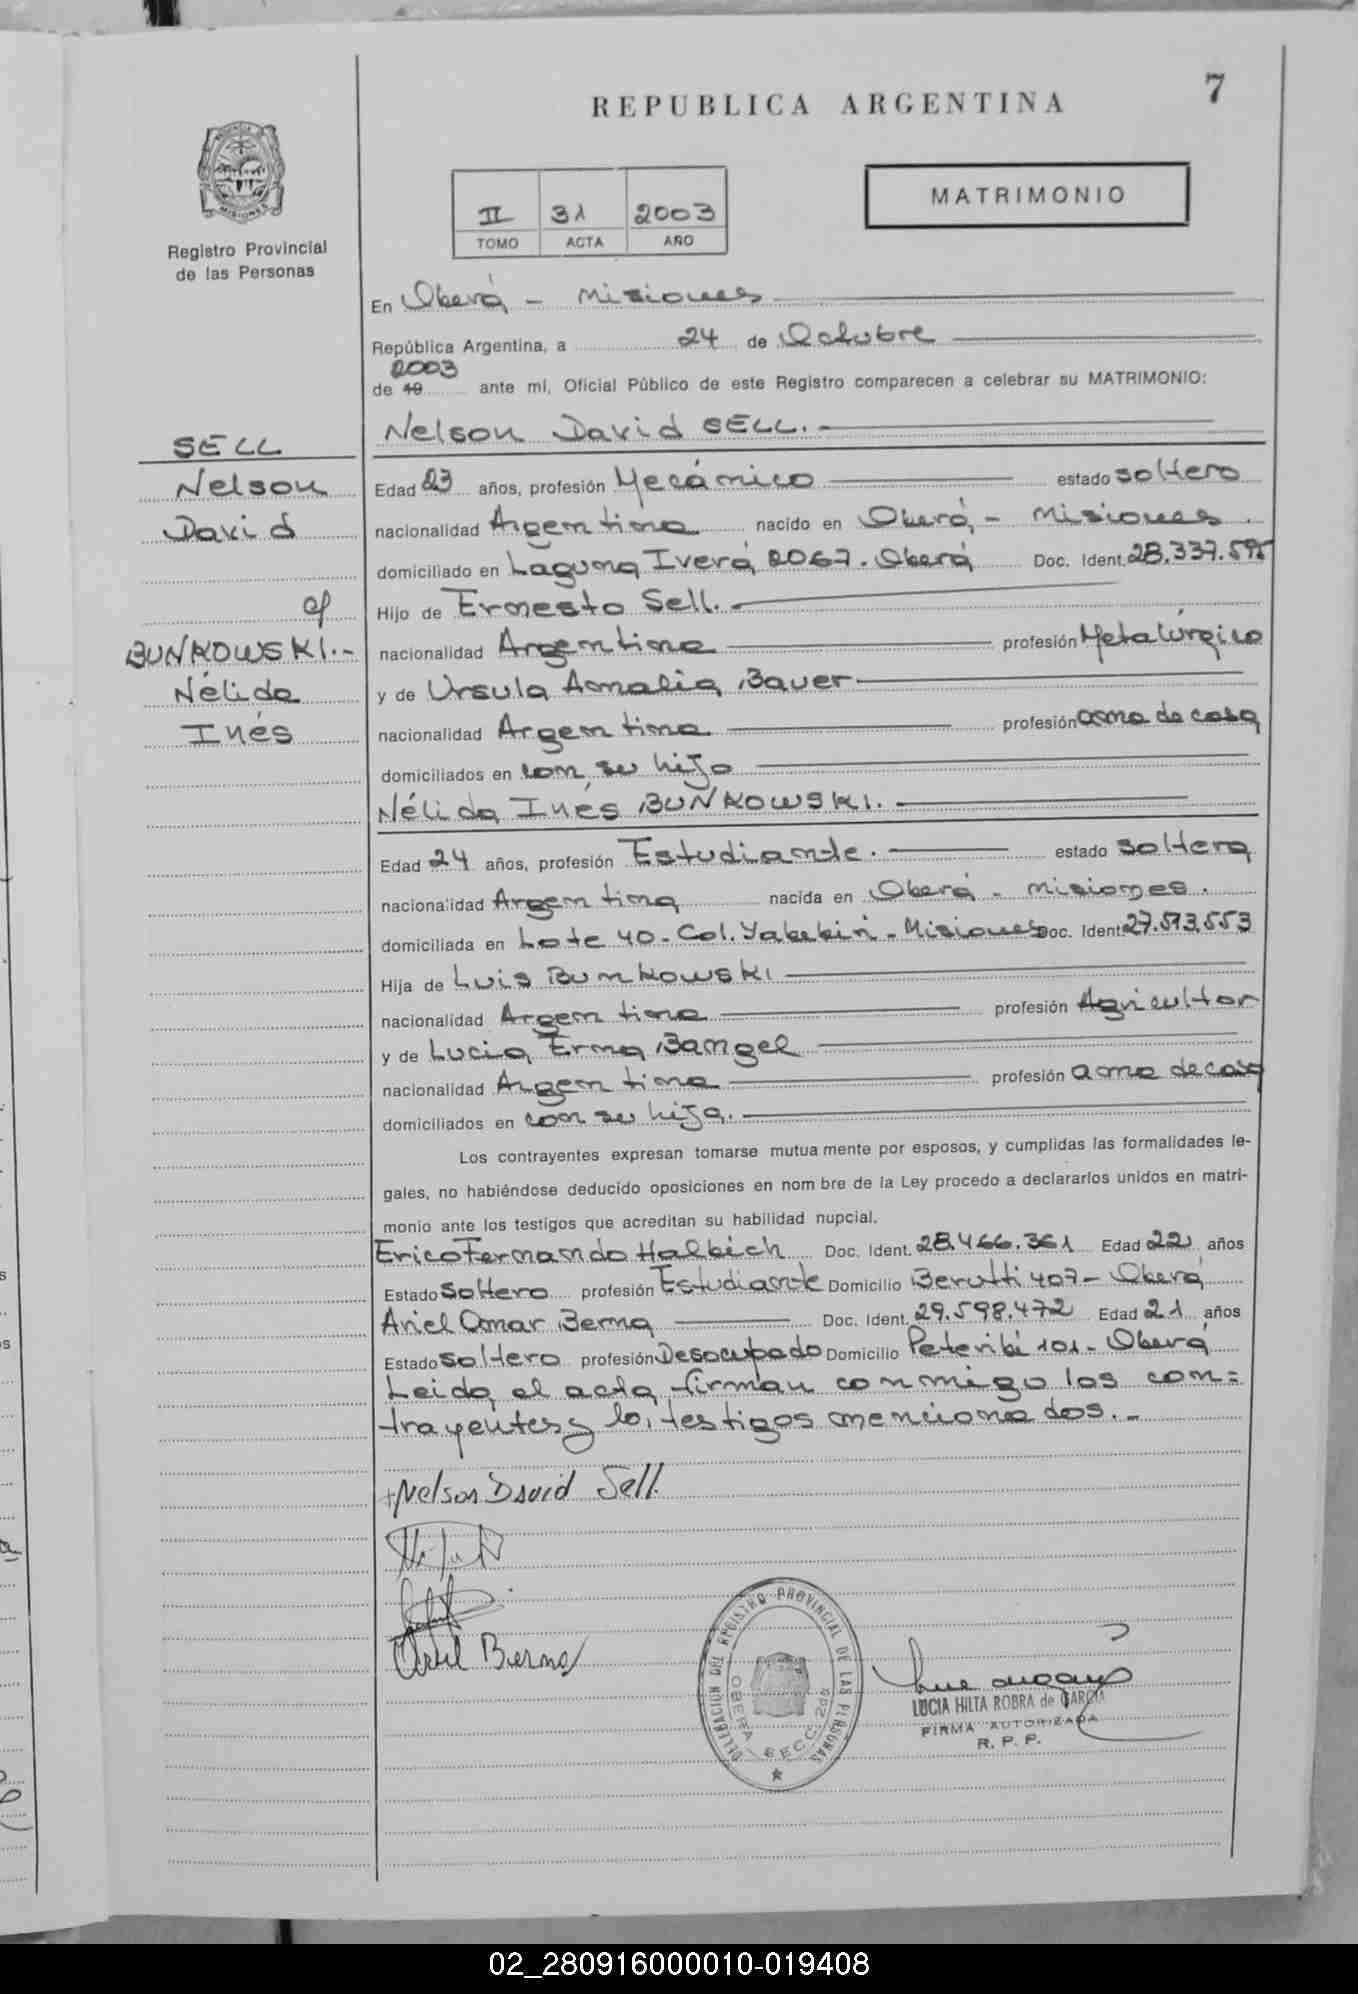 7
REPUBLICA ARGENTINA
PROVINCIA DE
MISIONES
Registro Provincial
de las Personas
II 31 2003
TOMO ACTA AÑO
MATRIMONIO
En Oberá - Misiones
República Argentina, a 24 de Octubre
2003
de 19 ante mí, Oficial Público de este Registro comparecen a celebrar su MATRIMONIO:
Nelson David SELL.
SELL
Nelson
David
c/
BUNKOWSKI.-
Nélida
Inés
Edad 23 años, profesión Mecánico estado soltero
nacionalidad Argentina nacido en Oberá - Misiones.
domiciliado en Laguna Iverá 2067. Oberá Doc. Ident. 28.337.595
Hijo de Ernesto Sell.
nacionalidad Argentina profesión Metalúrgico
y de Ursula Amalia Bauer
nacionalidad Argentina profesión ama de casa
domiciliados en con su hijo
Nélida Inés BUNKOWSKI.
Edad 24 años, profesión Estudiante. estado soltera
nacionalidad Argentina nacida en Oberá - Misiones.
domiciliada en Lote 40 - Col. Yabebiri - Misiones Doc. Ident. 27.573.553
Hija de Luis Bunkowski
nacionalidad Argentina profesión Agricultor
y de Lucia Erna Bangel
nacionalidad Argentina profesión ama de casa
domiciliados en con su hija.
Los contrayentes expresan tomarse mutua mente por esposos, y cumplidas las formalidades le-
gales, no habiéndose deducido oposiciones en nom bre de la Ley procedo a declararlos unidos en matri-
monio ante los testigos que acreditan su habilidad nupcial.
Erico Fernando Halbich Doc. Ident. 28.466.361 Edad 22 años
Estado soltero profesión Estudiante Domicilio Berutti 407 - Oberá
Ariel Omar Berna Doc. Ident. 29.598.472 Edad 21 años
Estado soltero profesión Desocupado Domicilio Peteribí 101 - Oberá
Leida el acta firman conmigo los con=
trayentes y los testigos mencionados.-
Nelson David Sell.
Ariel Berna
DELEGACION DEL REGISTRO PROVINCIAL DE LAS PERSONAS
OBERA SECC. 2da
LUCIA HILTA ROBRA de GARCIA
FIRMA AUTORIZADA
R. P. P.
02_280916000010-019408